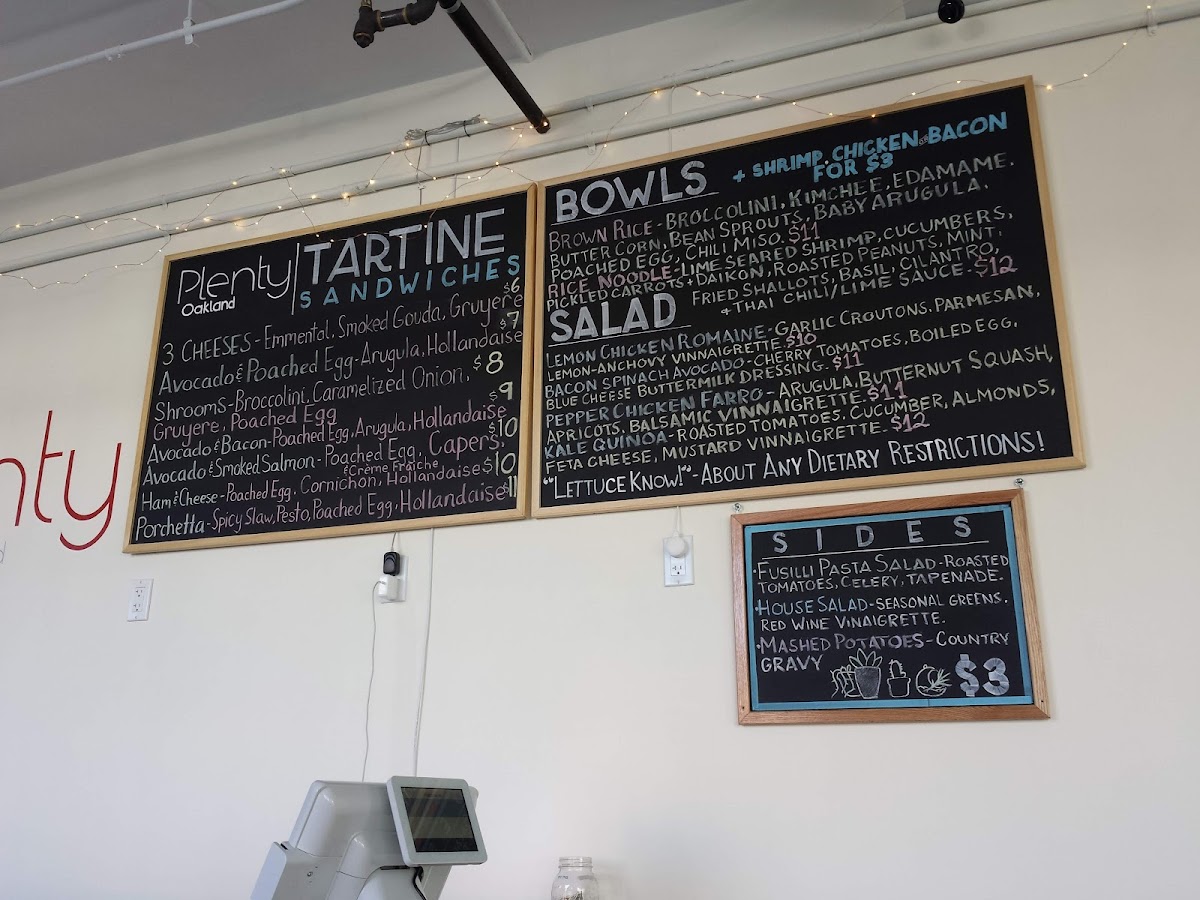 nty
Plenty
Oakland
TARTINE
SANDWICHES
3 CHEESES - Emmental, Smoked Gouda, Gruyere $6
Avocado & Poached Egg - Arugula, Hollandaise $7
Shrooms - Broccolini, Caramelized Onion, $8
Gruyere, Poached Egg
Avocado & Bacon - Poached Egg, Arugula, Hollandaise $9
Avocado & Smoked Salmon - Poached Egg, Capers, $10
& Crème Fraiche
Ham & Cheese - Poached Egg, Cornichon, Hollandaise $10
Porchetta - Spicy Slaw, Pesto, Poached Egg, Hollandaise $11
BOWLS
+ SHRIMP, CHICKEN OR BACON
FOR $3
BROWN RICE - BROCCOLINI, KIMCHEE, EDAMAME.
BUTTER CORN, BEAN SPROUTS, BABY ARUGULA.
POACHED EGG, CHILI MISO. $11
RICE NOODLE - LIME SEARED SHRIMP, CUCUMBERS,
PICKLED CARROTS + DAIKON, ROASTED PEANUTS, MINT,
FRIED SHALLOTS, BASIL, CILANTRO,
+ THAI CHILI/LIME SAUCE - $12
SALAD
LEMON CHICKEN ROMAINE - GARLIC CROUTONS. PARMESAN,
LEMON-ANCHOVY VINNAIGRETTE. $10
BACON SPINACH AVOCADO - CHERRY TOMATOES, BOILED EGG,
BLUE CHEESE BUTTERMILK DRESSING. $11
PEPPER CHICKEN FARRO - ARUGULA, BUTTERNUT SQUASH,
APRICOTS. BALSAMIC VINNAIGRETTE. $11
KALE QUINOA - ROASTED TOMATOES. CUCUMBER, ALMONDS,
FETA CHEESE, MUSTARD VINNAIGRETTE. $12
"LETTUCE KNOW!" - ABOUT ANY DIETARY RESTRICTIONS!
SIDES
• FUSILLI PASTA SALAD - ROASTED
TOMATOES, CELERY, TAPENADE.
• HOUSE SALAD - SEASONAL GREENS.
RED WINE VINAIGRETTE.
• MASHED POTATOES - COUNTRY
GRAVY
$3